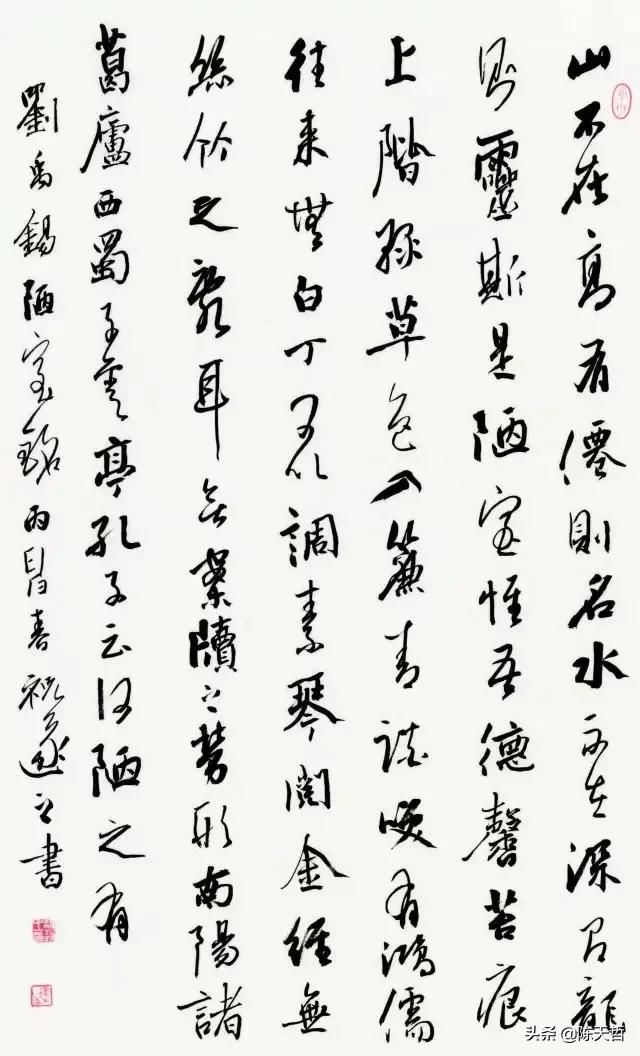 山不在高有僊則名水不在深有龍
則靈斯是陋室惟吾德馨苔痕
上階綠草色入簾青談咲有鴻儒
往来無白丁可以調素琴閱金經無
絲竹之亂耳無案牘之勞形南陽諸
葛廬西蜀子雲亭孔子云何陋之有
劉禹錫陋室銘春祝之書
头条 @陈天哲